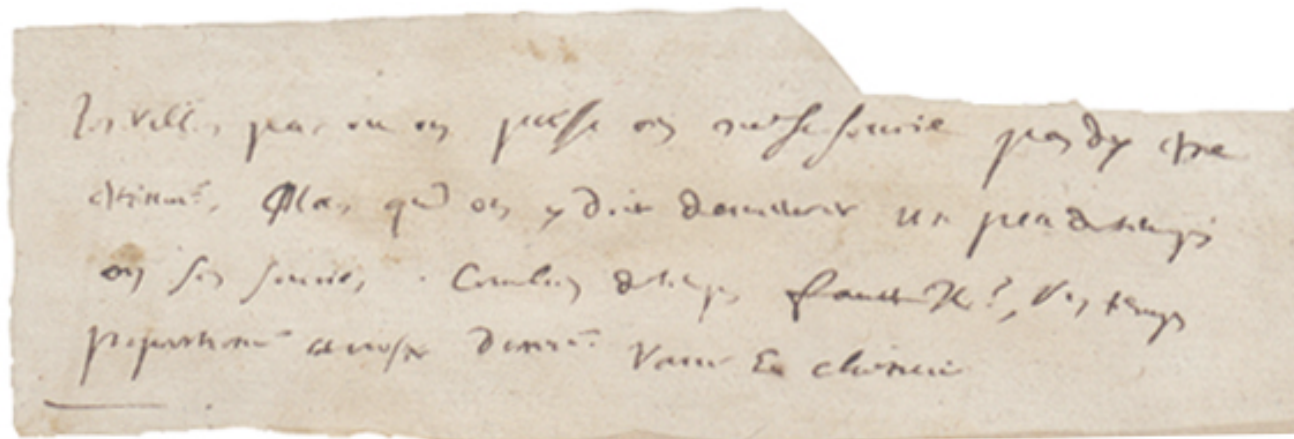 Les villes par ou on passe on ne se soucie pas dy estre
estimé, Mais qd on y doit demeurer un peu de temps
on sen soucie, . Combien de temps faut il?, Un temps
proportionné a nostre durée vaine & chetive